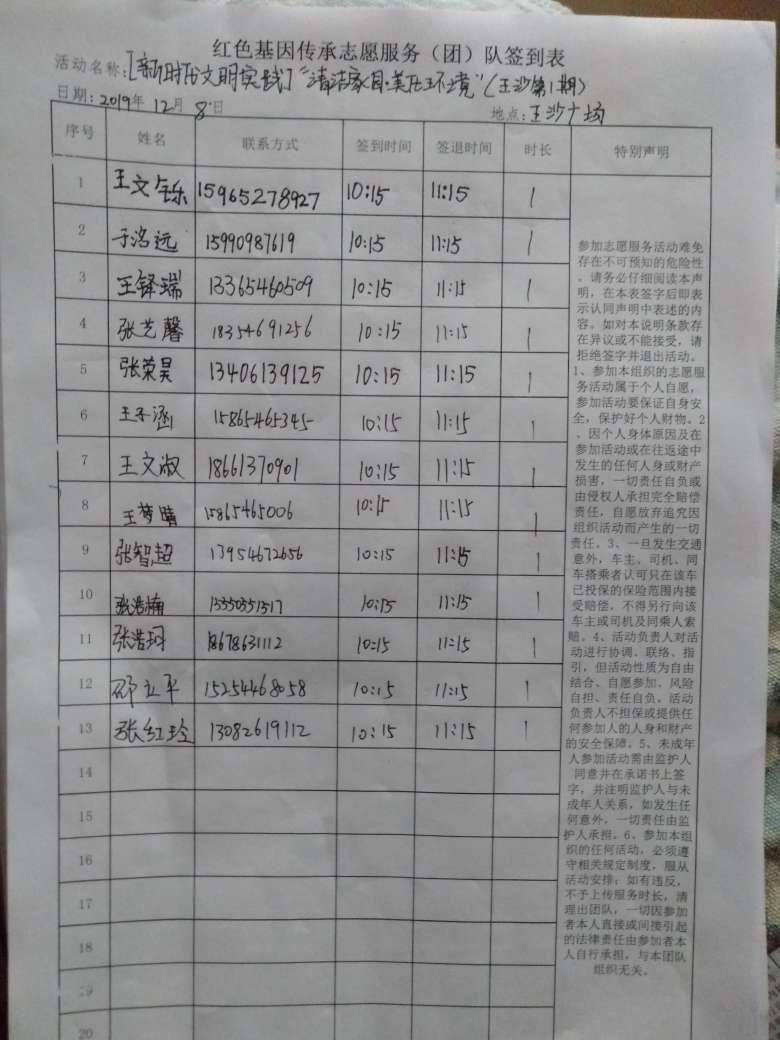 红色基因传承志愿服务（团）队签到表
活动名称：[新时代文明实践]"清洁家园·美化环境"（王沙第1期）
日期：2019年12月8日 地点：王沙广场
序号 姓名 联系方式 签到时间 签退时间 时长 特别声明
1 王文乐 15965278927 10:15 11:15 1
2 于洺远 15990987619 10:15 11:15 1
3 王铎瑞 13365460509 10:15 11:15 1
4 张艺馨 18354691256 10:15 11:15 1
5 张荣昊 13406139125 10:15 11:15 1
6 王子涵 15865465345 10:15 11:15 1
7 王文淑 18661370901 10:15 11:15 1
8 王梦晴 15865465006 10:15 11:15 1
9 张智超 13954672656 10:15 11:15 1
10 张浩楠 10:15 11:15 1
11 张浩珂 18678631112 10:15 11:15 1
12 邵立平 15254468058 10:15 11:15 1
13 张红玲 13082619112 10:15 11:15 1
14
15
16
17
18
19
20
参加志愿服务活动难免
存在不可预知的危险性
。请务必仔细阅读本声
明，在本表签字后即表
示认同声明中表述的内
容。如对本说明条款存
在异议或不能接受，请
拒绝签字并退出活动。
1、参加本组织的志愿服
务活动属于个人自愿，
参加活动要保证自身安
全，保护好个人财物。2
、因个人身体原因及在
参加活动或在往返途中
发生的任何人身或财产
损害，一切责任自负或
由侵权人承担完全赔偿
责任，自愿放弃追究因
组织活动而产生的一切
责任。3、一旦发生交通
意外，车主、司机、同
车搭乘者认可只在该车
已投保的保险范围内接
受赔偿，不得另行向该
车主或司机及同乘人索
赔。4、活动负责人对活
动进行协调、联络、指
引，但活动性质为自由
结合、自愿参加、风险
自担、责任自负。活动
负责人不担保或提供任
何参加人的人身和财产
的安全保障。5、未成年
人参加活动需由监护人
同意并在承诺书上签
字，并注明监护人与未
成年人关系，如发生任
何意外，一切责任由监
护人承担。6、参加本组
织的任何活动，必须遵
守相关规定制度，服从
活动安排；如有违反，
不予上传服务时长，清
理出团队，一切因参加
者本人直接或间接引起
的法律责任由参加者本
人自行承担，与本团队
组织无关。